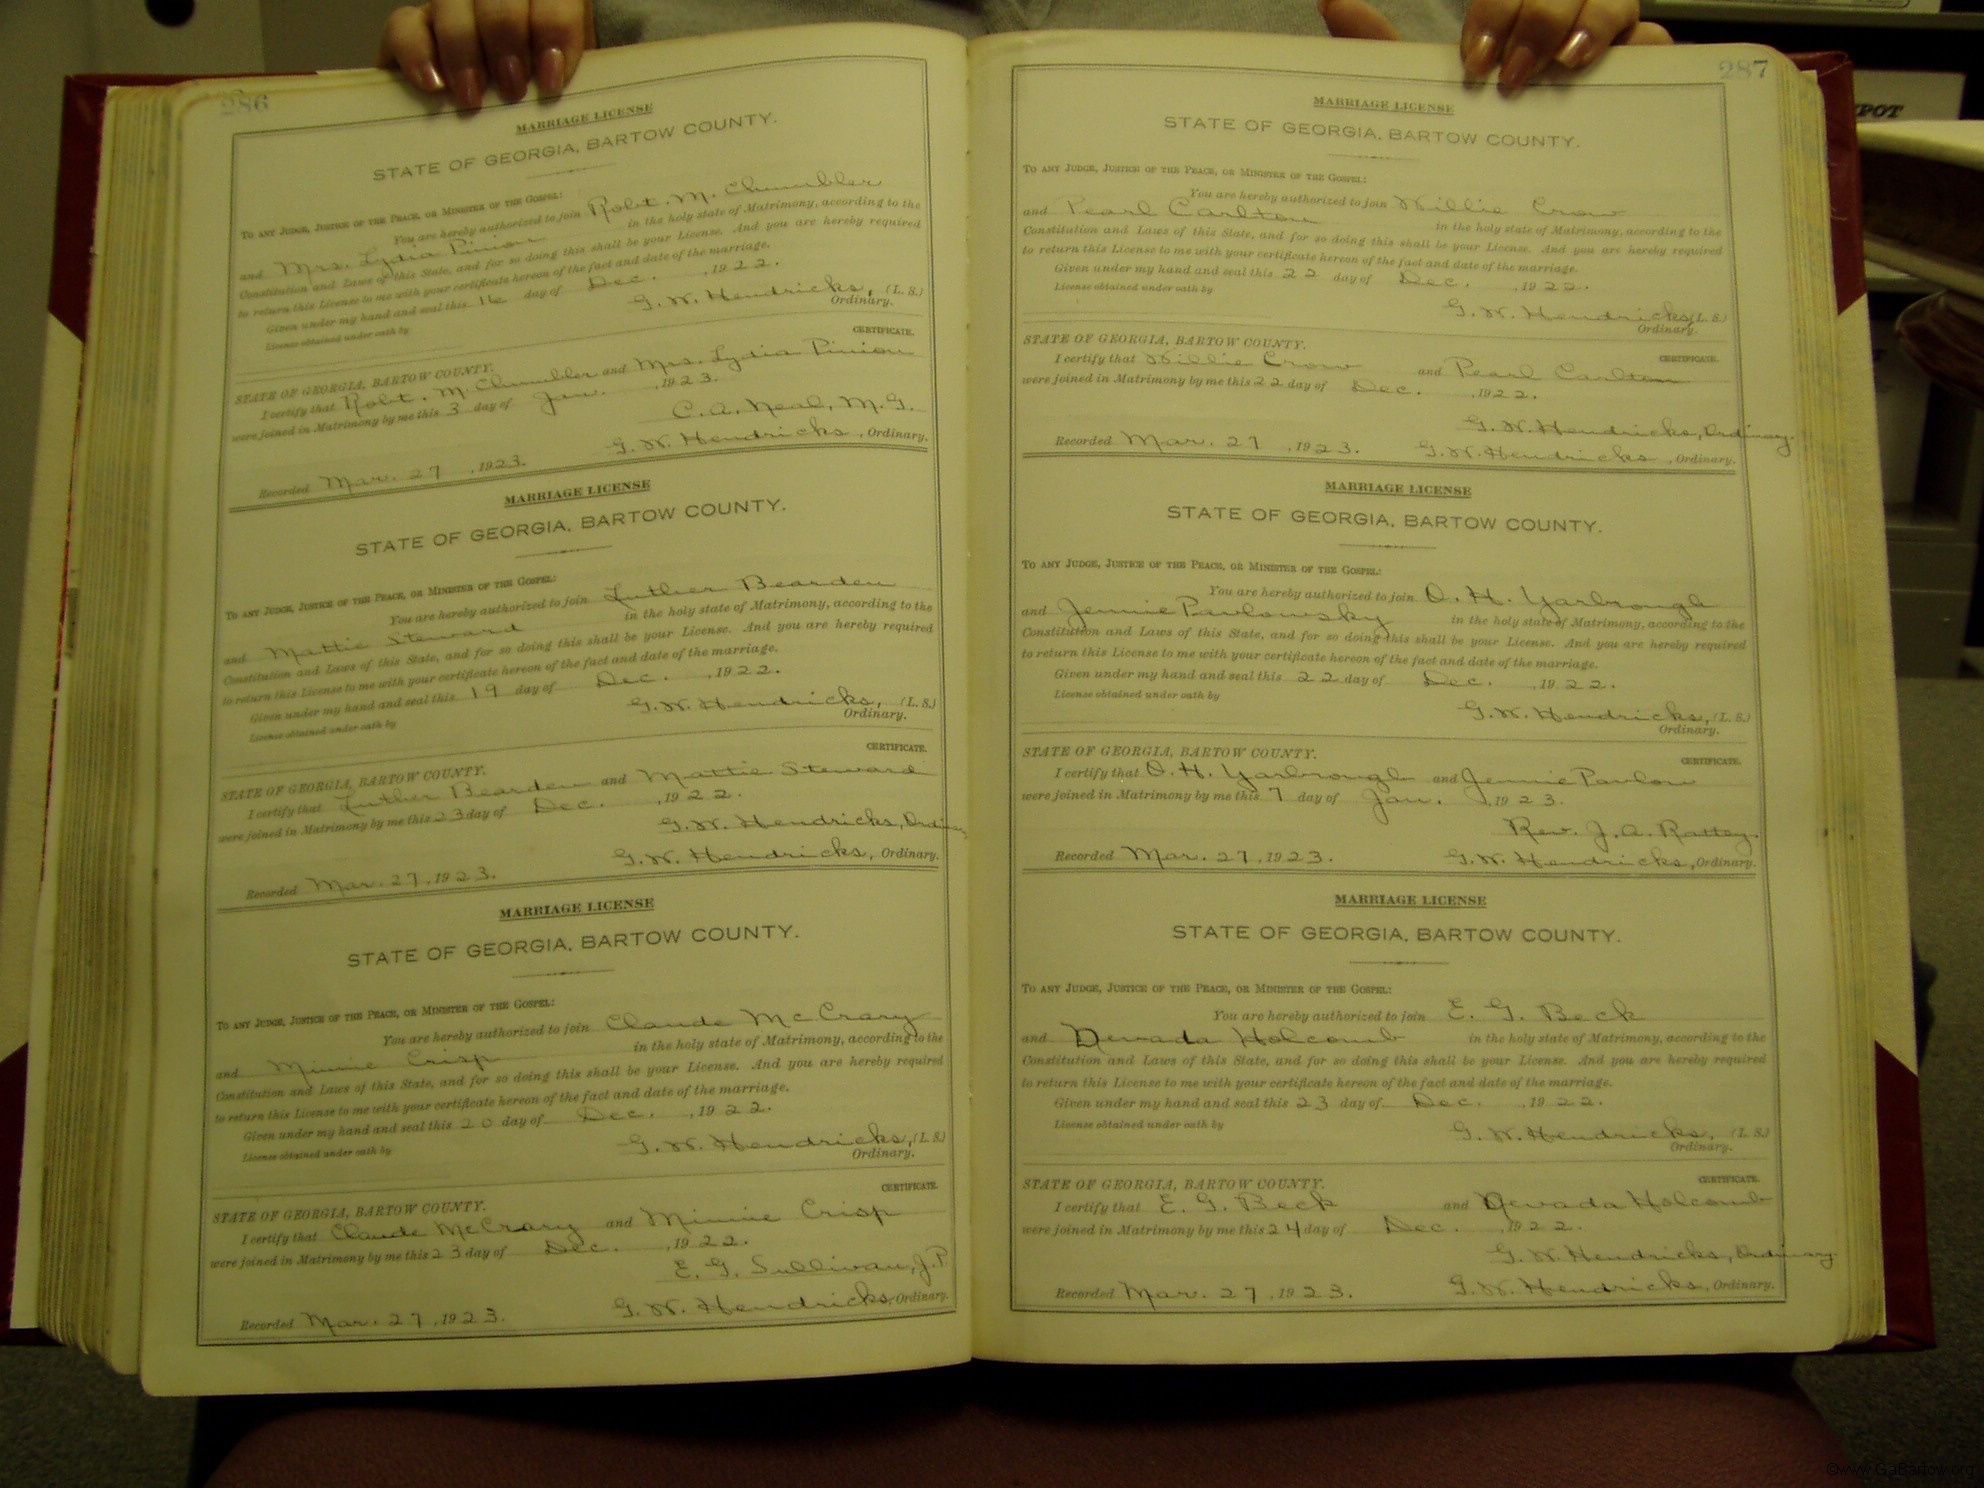 286
MARRIAGE LICENSE
STATE OF GEORGIA, BARTOW COUNTY.
TO ANY JUDGE, JUSTICE OF THE PEACE, OR MINISTER OF THE GOSPEL:
You are hereby authorized to join Robt. M. Chumbler
and Mrs. Lydia Pinion in the holy state of Matrimony, according to the
Constitution and Laws of this State, and for so doing this shall be your License. And you are hereby required
to return this License to me with your certificate hereon of the fact and date of the marriage.
Given under my hand and seal this 16 day of Dec. , 1922.
License obtained under oath by
G. W. Hendricks, (L. S.)
Ordinary.
CERTIFICATE.
STATE OF GEORGIA, BARTOW COUNTY.
I certify that Robt. M. Chumbler and Mrs. Lydia Pinion
were joined in Matrimony by me this 3 day of Jan. , 1923.
C. A. Neal, M. G.
Recorded Mar. 27 , 1923. G. W. Hendricks , Ordinary.
MARRIAGE LICENSE
STATE OF GEORGIA, BARTOW COUNTY.
TO ANY JUDGE, JUSTICE OF THE PEACE, OR MINISTER OF THE GOSPEL:
You are hereby authorized to join Luther Bearden
and Mattie Steward in the holy state of Matrimony, according to the
Constitution and Laws of this State, and for so doing this shall be your License. And you are hereby required
to return this License to me with your certificate hereon of the fact and date of the marriage.
Given under my hand and seal this 19 day of Dec. , 1922.
License obtained under oath by
G. W. Hendricks, (L. S.)
Ordinary.
CERTIFICATE.
STATE OF GEORGIA, BARTOW COUNTY.
I certify that Luther Bearden and Mattie Steward
were joined in Matrimony by me this 23 day of Dec. , 1922.
G. W. Hendricks, Ordinary
Recorded Mar. 27 , 1923. G. W. Hendricks, Ordinary.
MARRIAGE LICENSE
STATE OF GEORGIA, BARTOW COUNTY.
TO ANY JUDGE, JUSTICE OF THE PEACE, OR MINISTER OF THE GOSPEL:
You are hereby authorized to join Claude McCrary
and Minnie Crisp in the holy state of Matrimony, according to the
Constitution and Laws of this State, and for so doing this shall be your License. And you are hereby required
to return this License to me with your certificate hereon of the fact and date of the marriage.
Given under my hand and seal this 20 day of Dec. , 1922.
License obtained under oath by
G. W. Hendricks, (L. S.)
Ordinary.
CERTIFICATE.
STATE OF GEORGIA, BARTOW COUNTY.
I certify that Claude McCrary and Minnie Crisp
were joined in Matrimony by me this 23 day of Dec. , 1922.
E. G. Sullivan, J. P
Recorded Mar. 27 , 1923. G. W. Hendricks, Ordinary.
287
MARRIAGE LICENSE
STATE OF GEORGIA, BARTOW COUNTY.
TO ANY JUDGE, JUSTICE OF THE PEACE, OR MINISTER OF THE GOSPEL:
You are hereby authorized to join Willie Crow
and Pearl Carlton in the holy state of Matrimony, according to the
Constitution and Laws of this State, and for so doing this shall be your License. And you are hereby required
to return this License to me with your certificate hereon of the fact and date of the marriage.
Given under my hand and seal this 22 day of Dec. , 1922.
License obtained under oath by
G. W. Hendricks (L. S.)
Ordinary.
STATE OF GEORGIA, BARTOW COUNTY.
CERTIFICATE.
I certify that Willie Crow and Pearl Carlton
were joined in Matrimony by me this 22 day of Dec. , 1922.
G. W. Hendricks, Ordinary.
Recorded Mar. 27 , 1923. G. W. Hendricks , Ordinary.
MARRIAGE LICENSE
STATE OF GEORGIA, BARTOW COUNTY.
TO ANY JUDGE, JUSTICE OF THE PEACE, OR MINISTER OF THE GOSPEL:
You are hereby authorized to join O. H. Yarbrough
and Jennie Pavlowsky in the holy state of Matrimony, according to the
Constitution and Laws of this State, and for so doing this shall be your License. And you are hereby required
to return this License to me with your certificate hereon of the fact and date of the marriage.
Given under my hand and seal this 22 day of Dec. , 1922.
License obtained under oath by
G. W. Hendricks, (L. S.)
Ordinary.
STATE OF GEORGIA, BARTOW COUNTY.
CERTIFICATE.
I certify that O. H. Yarbrough and Jennie Pavlow
were joined in Matrimony by me this 7 day of Jan. , 1923.
Rev. J. A. Rattey.
Recorded Mar. 27 , 1923. G. W. Hendricks , Ordinary.
MARRIAGE LICENSE
STATE OF GEORGIA, BARTOW COUNTY.
TO ANY JUDGE, JUSTICE OF THE PEACE, OR MINISTER OF THE GOSPEL:
You are hereby authorized to join E. G. Beck
and Nevada Holcomb in the holy state of Matrimony, according to the
Constitution and Laws of this State, and for so doing this shall be your License. And you are hereby required
to return this License to me with your certificate hereon of the fact and date of the marriage.
Given under my hand and seal this 23 day of Dec. , 1922.
License obtained under oath by
G. W. Hendricks, (L. S.)
Ordinary.
STATE OF GEORGIA, BARTOW COUNTY.
CERTIFICATE.
I certify that E. G. Beck and Nevada Holcomb
were joined in Matrimony by me this 24 day of Dec. , 1922.
G. W. Hendricks, Ordinary.
Recorded Mar. 27 , 1923. G. W. Hendricks, Ordinary.
POT
©www.GaBartow.org